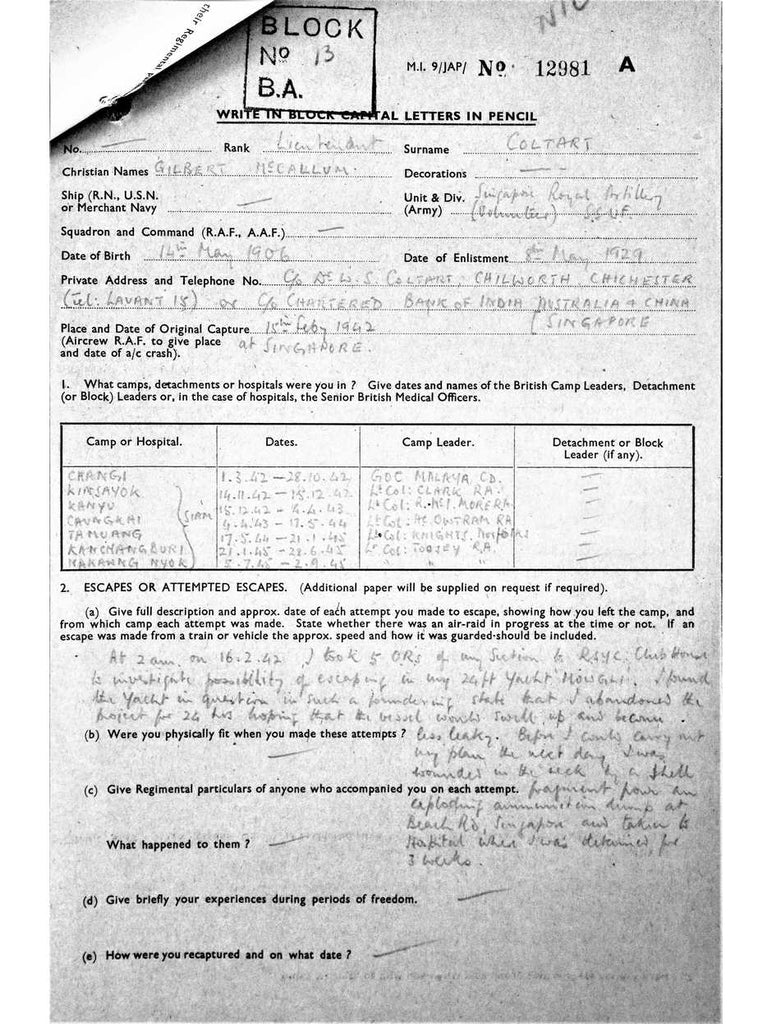 their Regimental
NIL
BLOCK
Nº 13
B.A.
M.I. 9/JAP/ No. 12981 A
WRITE IN BLOCK CAPITAL LETTERS IN PENCIL
No. — Rank Lieutenant Surname COLTART
Christian Names GILBERT McCALLUM. Decorations —
Ship (R.N., U.S.N. or Merchant Navy — Unit & Div. (Army) Singapore Royal Artillery (Volunteer) SSVF.
Squadron and Command (R.A.F., A.A.F.) —
Date of Birth 14th May 1906 Date of Enlistment 8th May 1929
Private Address and Telephone No. C/o Dr W.S. COLTART, CHILWORTH CHICHESTER
(Tel: LAVANT 15) or C/o CHARTERED BANK OF INDIA AUSTRALIA & CHINA
(SINGAPORE
Place and Date of Original Capture 15th Feby 1942
(Aircrew R.A.F. to give place at SINGAPORE.
and date of a/c crash).
1. What camps, detachments or hospitals were you in ? Give dates and names of the British Camp Leaders, Detachment
(or Block) Leaders or, in the case of hospitals, the Senior British Medical Officers.
Camp or Hospital. Dates. Camp Leader. Detachment or Block
Leader (if any).
CHANGI 1.3.42 — 28.10.42 GOC MALAYA CD. —
KINSAYOK 14.11.42 — 15.12.42 Lt Col: CLARK RA. —
KANYU 15.12.42 — 4.4.43 Lt Col: MORE RA. —
CHUNGKAI SIAM 4.4.43 — 17.5.44 Lt Col: OUTRAM RA —
TAMUANG 17.5.44 — 21.1.45 Lt Col: KNIGHTS. Norfolks —
KANCHANGBURI 21.1.45 — 28.6.45 Lt Col: TOOSEY R.A. —
NAKANNG NYOK 5.7.45 — 2.9.45
2. ESCAPES OR ATTEMPTED ESCAPES. (Additional paper will be supplied on request if required).
(a) Give full description and approx. date of each attempt you made to escape, showing how you left the camp, and
from which camp each attempt was made. State whether there was an air-raid in progress at the time or not. If an
escape was made from a train or vehicle the approx. speed and how it was guarded-should be included.
At 2 am. on 16.2.42 I took 5 ORs of my Section to RSYC. Club House
to investigate possibility of escaping in my 24ft Yacht MOWGLI. I found
the Yacht in question in such a foundering state that I abandoned the
project for 24 hrs hoping that the vessel would swell up and become
(b) Were you physically fit when you made these attempts ? less leaky. Before I could carry out
— my plan the next day I was
wounded in the neck by a shell
(c) Give Regimental particulars of anyone who accompanied you on each attempt. fragment from an
exploding ammunition dump at
Beach Rd, Singapore and taken to
What happened to them ? — Hospital where I was detained for
3 weeks.
(d) Give briefly your experiences during periods of freedom. —
(e) How were you recaptured and on what date ? —